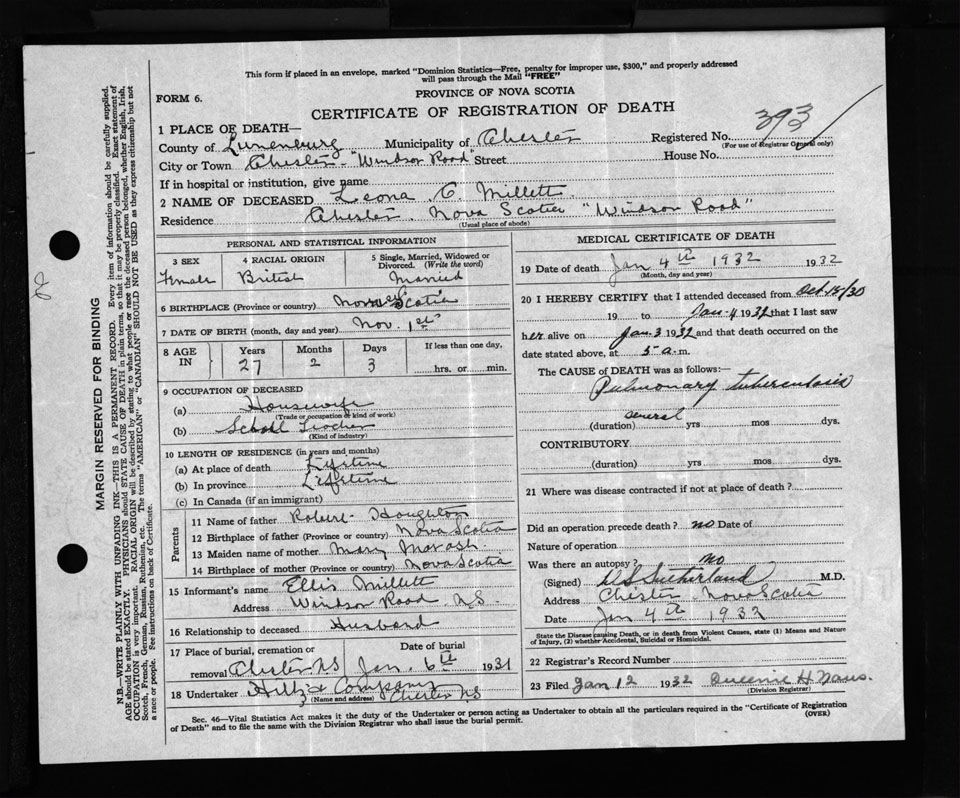 This form if placed in an envelope, marked "Dominion Statistics—Free, penalty for improper use, $300," and properly addressed
will pass through the Mail "FREE"
FORM 6.
PROVINCE OF NOVA SCOTIA
CERTIFICATE OF REGISTRATION OF DEATH
1 PLACE OF DEATH—
County of Lunenburg Municipality of Chester Registered No. 393
(For use of Registrar General only)
City or Town Chester - "Windsor Road" Street House No.
If in hospital or institution, give name
2 NAME OF DECEASED Leona C. Millett
Residence Chester Nova Scotia "Windsor Road"
(Usual place of abode)
PERSONAL AND STATISTICAL INFORMATION
3 SEX 4 RACIAL ORIGIN 5 Single, Married, Widowed or
Divorced. (Write the word)
Female British Married
6 BIRTHPLACE (Province or country) Nova Scotia
7 DATE OF BIRTH (month, day and year) Nov. 1st
8 AGE IN Years Months Days If less than one day,
27 2 3 hrs. or min.
9 OCCUPATION OF DECEASED
(a) Housewife
(Trade or occupation or kind of work)
(b) School Teacher
(Kind of industry)
10 LENGTH OF RESIDENCE (in years and months)
(a) At place of death Lifetime
(b) In province Lifetime
(c) In Canada (if an immigrant)
Parents
11 Name of father Robert Houghton
12 Birthplace of father (Province or country) Nova Scotia
13 Maiden name of mother Mary Marash
14 Birthplace of mother (Province or country) Nova Scotia
15 Informant's name Ellis Millett
Address Windsor Road NS.
16 Relationship to deceased Husband
17 Place of burial, cremation or Date of burial
removal Chester NS Jan. 6th 1931
18 Undertaker Hiltz & Company
(Name and address) Chester NS
MEDICAL CERTIFICATE OF DEATH
19 Date of death Jan 4th 1932 1932
(Month, day and year)
20 I HEREBY CERTIFY that I attended deceased from Oct 15/30
19 to Jan-4 1932 that I last saw
her alive on Jan. 3 1932 and that death occurred on the
date stated above, at 5 a. m.
The CAUSE of DEATH was as follows:—
Pulmonary tuberculosis
(duration) several yrs mos dys.
CONTRIBUTORY
(duration) yrs mos dys.
21 Where was disease contracted if not at place of death?
Did an operation precede death? no Date of
Nature of operation
Was there an autopsy? no
(Signed) Sutherland M.D.
Address Chester Nova Scotia
Date Jan 4th 1932
State the Disease causing Death, or in death from Violent Causes, state (1) Means and Nature
of Injury, (2) whether Accidental, Suicidal or Homicidal.
22 Registrar's Record Number
23 Filed Jan 12 1932 Queenie H.
(Division Registrar)
Sec. 46—Vital Statistics Act makes it the duty of the Undertaker or person acting as Undertaker to obtain all the particulars required in the "Certificate of Registration
of Death" and to file the same with the Division Registrar who shall issue the burial permit.
(OVER)
MARGIN RESERVED FOR BINDING
N.B.—WRITE PLAINLY WITH UNFADING INK—THIS IS A PERMANENT RECORD. Every item of information should be carefully supplied.
AGE should be stated EXACTLY. PHYSICIANS should STATE CAUSE OF DEATH in plain terms, so that it may be properly classified. Exact statement of
OCCUPATION is very important. RACIAL ORIGIN will be described by stating to what people or race the deceased person belonged, whether English, Irish,
Scotch, French, German, Russian, Ruthenian, etc. The terms "AMERICAN" or "CANADIAN" SHOULD NOT BE USED as they express citizenship but not
a race or people. See instructions on back of Certificate.